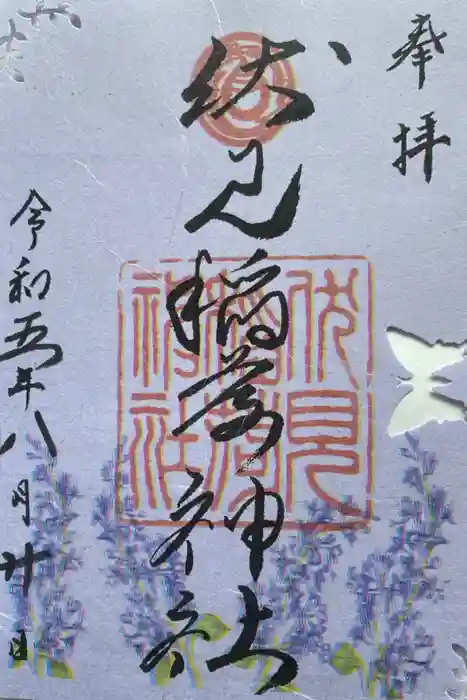 奉拝
伏見稲荷神社
令和五年八月廿日
伏見稲荷神社